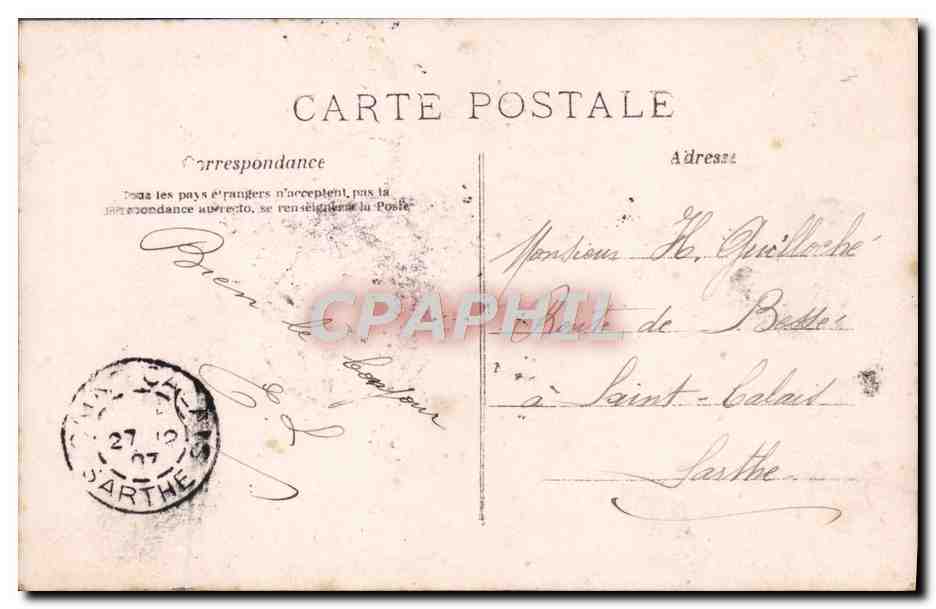 CARTE POSTALE
Correspondance
Tous les pays étrangers n'acceptent pas la
correspondance au recto, se renseigner à la Poste
Bien le bonjour
Adresse
Monsieur H. Guilloché
Route de Bessé
à Saint-Calais
Sarthe
27 12
07
SARTHE
CPAPHIL